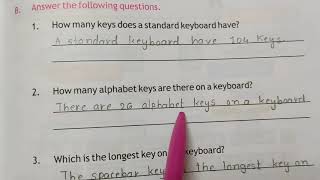 B. Answer the following questions.
1. How many keys does a standard keyboard have?
A standard keyboard have 104 keys.
2. How many alphabet keys are there on a keyboard?
There are 26 alphabet keys on a keyboard
3. Which is the longest key on keyboard?
The spacebar key the longest key on